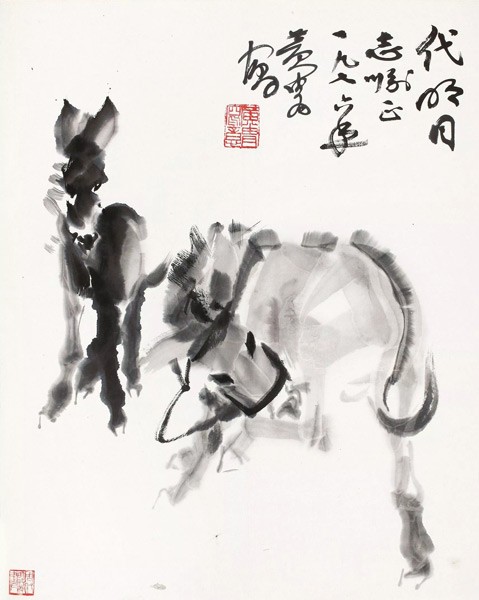 代明同
志嘱正
一九七六年
黄胄
写